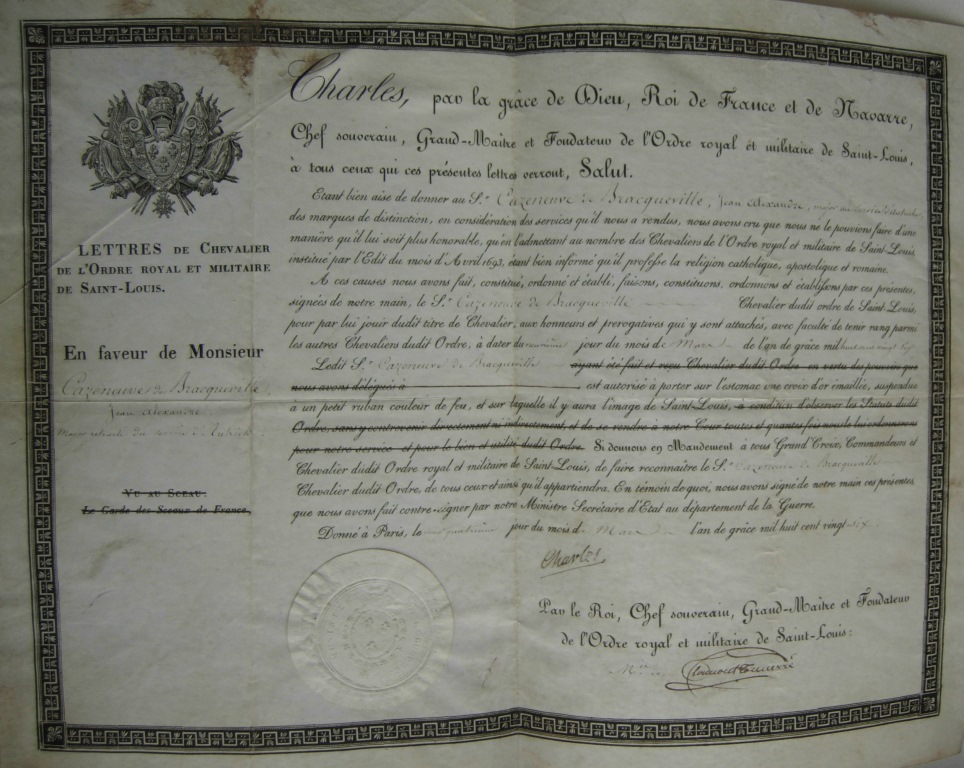 LETTRES DE CHEVALIER
DE L'ORDRE ROYAL ET MILITAIRE
DE SAINT-LOUIS.
En faveur de Monsieur
Cazeneuve de Bracqueville,
Jean Alexandre
Major retraité du service d'Autriche
VU AU SCEAU:
Le Garde des Sceaux de France,
Charles, par la grâce de Dieu, Roi de France et de Navarre,
Chef souverain, Grand-Maître et Fondateur de l'Ordre royal et militaire de Saint-Louis,
à tous ceux qui ces présentes lettres verront, Salut.
Etant bien aise de donner au S.r Cazeneuve de Bracqueville, Jean Alexandre, major au
des marques de distinction, en considération des services qu'il nous a rendus, nous avons cru que nous ne le pouvions faire d'une
manière qu'il lui soit plus honorable, qu'en l'admettant au nombre des Chevaliers de l'Ordre royal et militaire de Saint-Louis,
institué par l'Edit du mois d'Avril 1693, étant bien informé qu'il professe la religion catholique, apostolique et romaine.
A ces causes nous avons fait, constitué, ordonné et établi, faisons, constituons, ordonnons et établissons par ces présentes,
signées de notre main, le S.r Cazeneuve de Bracqueville Chevalier dudit ordre de Saint-Louis,
pour par lui jouir dudit titre de Chevalier, aux honneurs et prérogatives qui y sont attachés, avec faculté de tenir rang parmi
les autres Chevaliers dudit Ordre, à dater du jour du mois de Mars de l'an de grâce mil huit cent vingt six
Ledit S.r Cazeneuve de Bracqueville ayant été fait et reçu Chevalier dudit Ordre en vertu des pouvoirs que
nous avons délégués à , est autorisé à porter sur l'estomac une croix d'or émaillée, suspendue
à un petit ruban couleur de feu, et sur laquelle il y aura l'image de Saint-Louis, à condition d'observer les Statuts dudit
Ordre, sans y contrevenir directement ni indirectement, et de se rendre à notre Cour toutes et quantes fois nous le lui ordonnerons
pour notre service et pour le bien et utilité dudit Ordre. Si donnons en Mandement à tous Grand'Croix, Commandeurs et
Chevalier dudit Ordre royal et militaire de Saint-Louis, de faire reconnaître le S.r Cazeneuve de Bracqueville
Chevalier dudit Ordre, de tous ceux et ainsi qu'il appartiendra. En témoin de quoi, nous avons signé de notre main ces présentes,
que nous avons fait contre-signer par notre Ministre Secrétaire d'Etat au département de la Guerre.
Donné à Paris, le quatrième jour du mois de Mars l'an de grâce mil huit cent vingt-six.
Charles
Par le Roi, Chef souverain, Grand-Maître et Fondateur
de l'Ordre royal et militaire de Saint-Louis:
M.is de Clermont Tonnerre